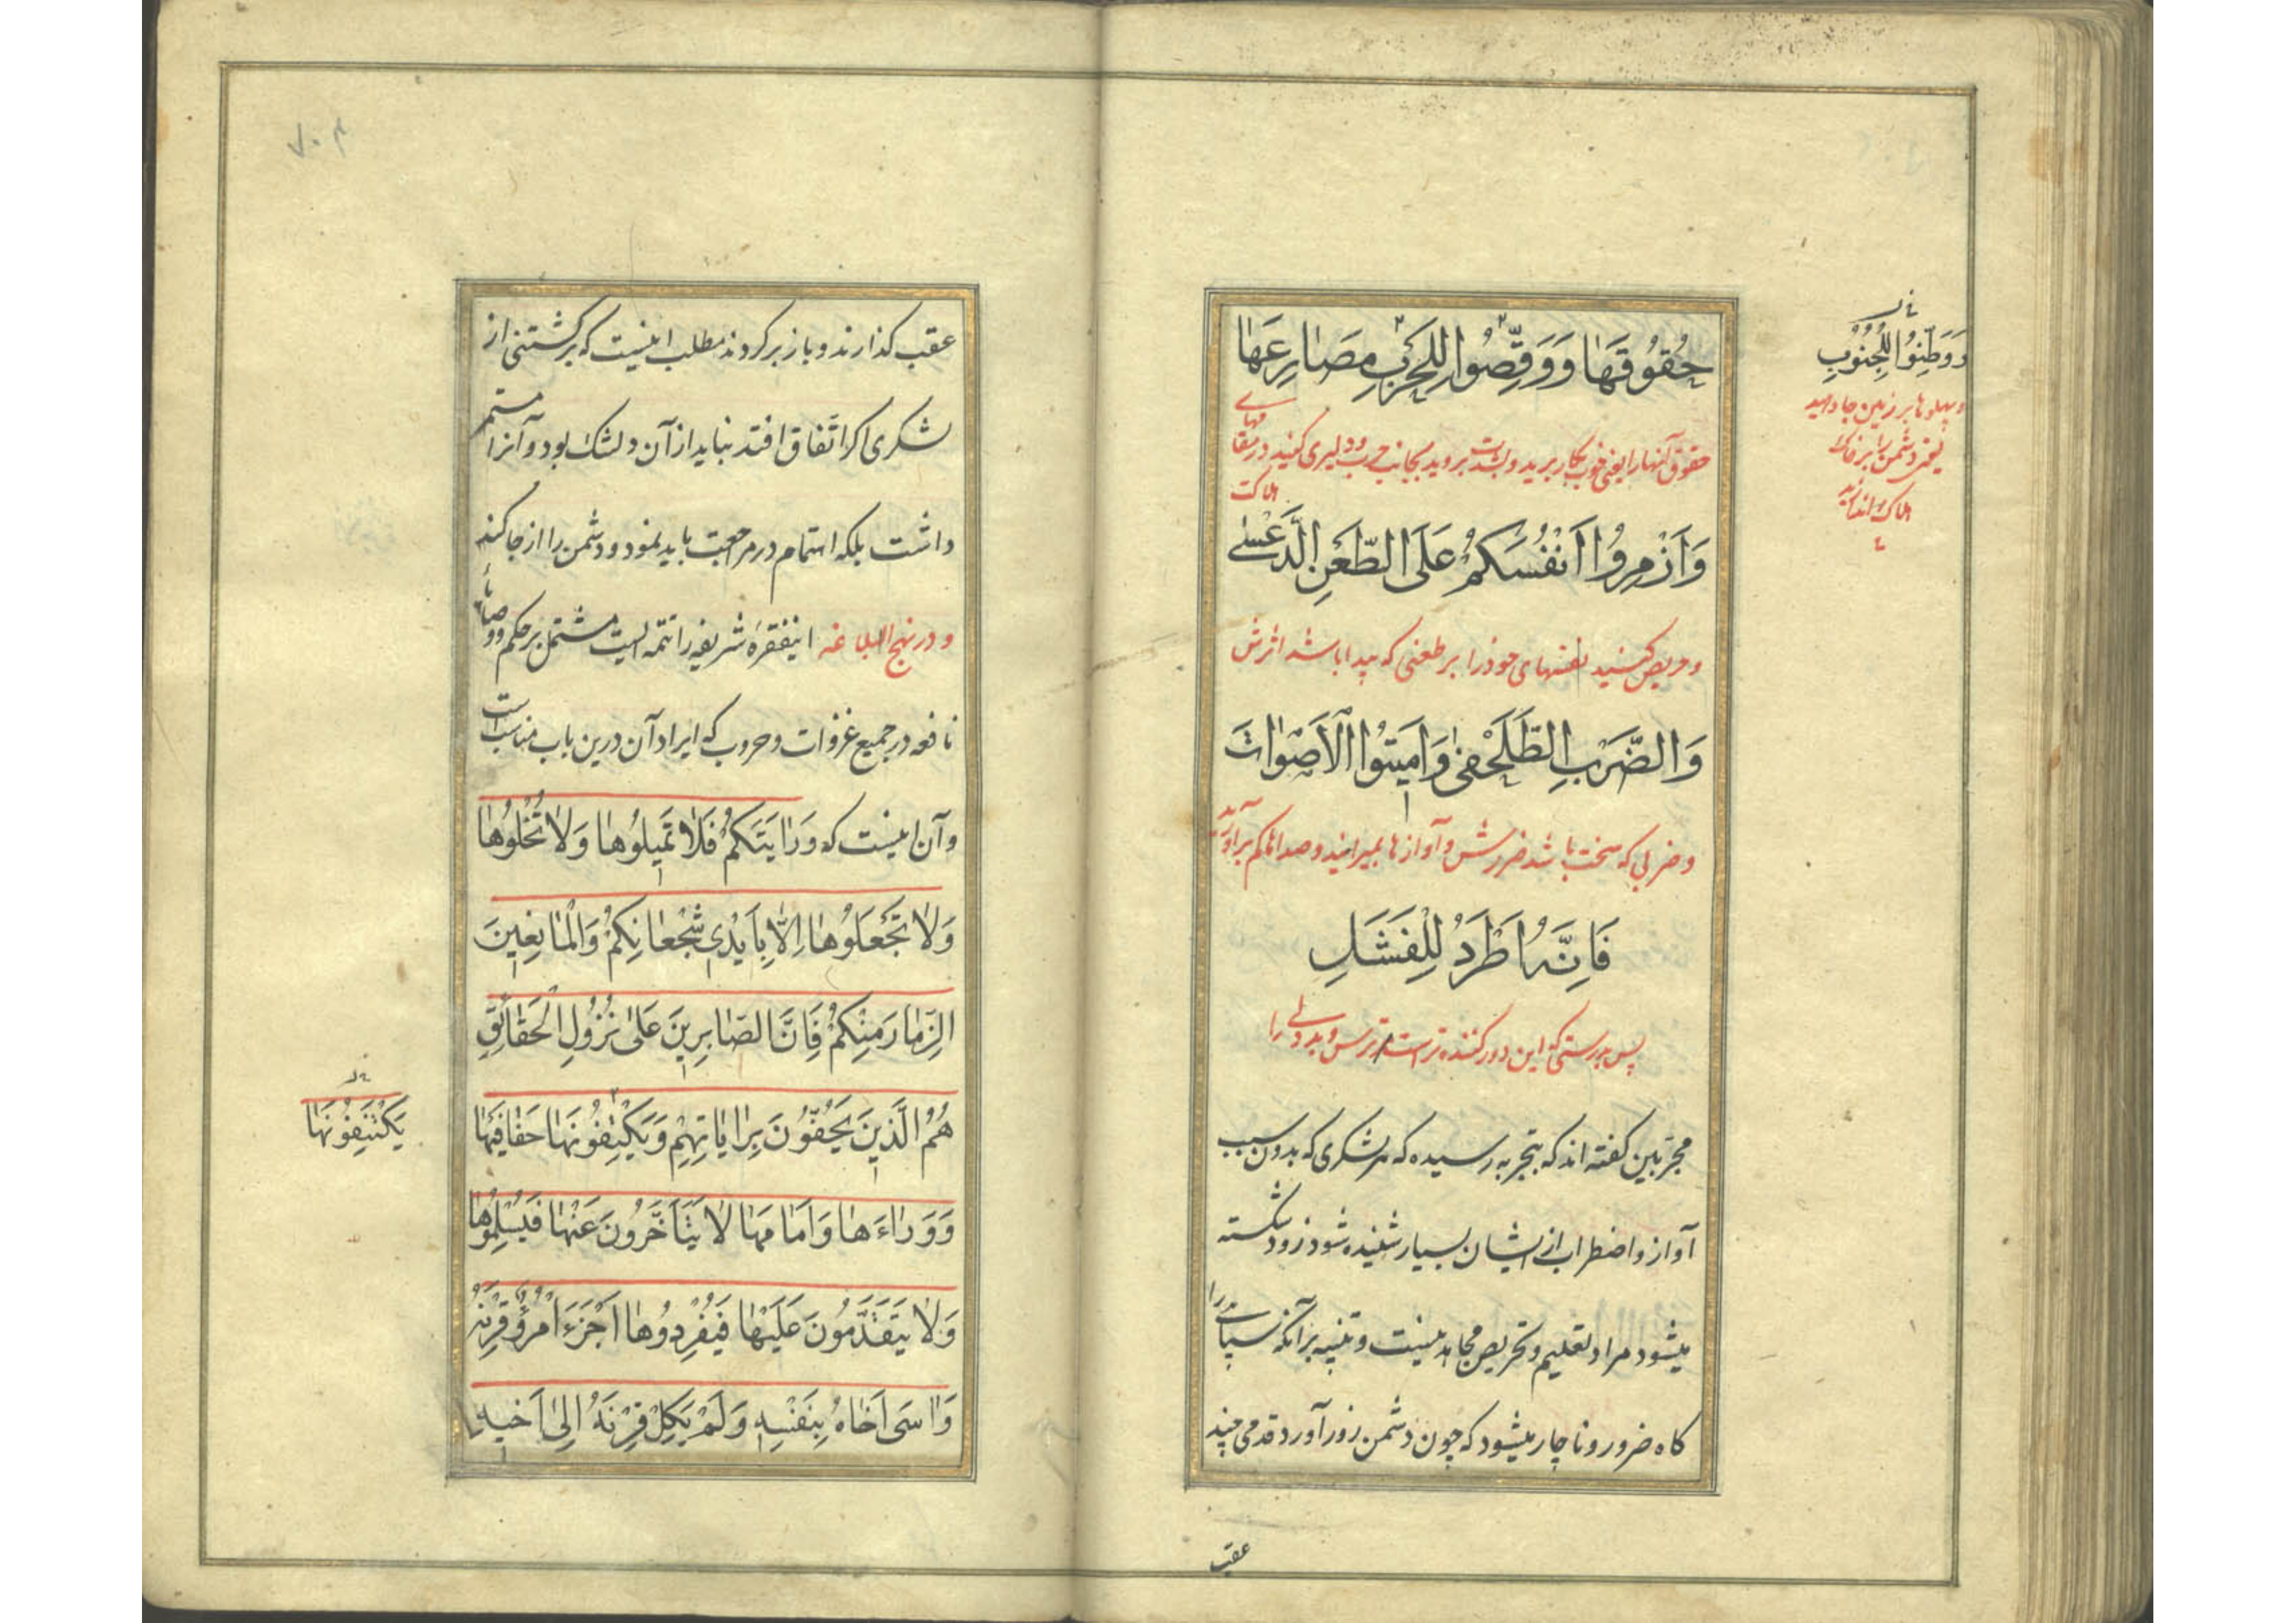 حُقُوقَهَا وَوَقِّصُوا لِلحَرْبِ مَصَارِعَهَا
حقوق آنها را یعنی خوب بکار برید و بشدت بروید بجانب حرب و دلیری کنید در مقامهای
هلاکت
وَاَذْمِرُوا اَنْفُسَكُمْ عَلَى الطَّعْنِ الدَّعْسٰى
و حریص کنید نفسهای خود را بر طعنی که پیدا باشد اثرش
وَالضَّرْبِ الطَّلَحْفٰى وَاَمِيتُوا الْاَصْوَاتَ
و ضربی که سخت باشد ضررش و آوازها بمیرانید و صداها کم برآورید
فَاِنَّهُ اَطْرَدُ لِلْفَشَلِ
پس بدرستی که این دور کننده تر است ترس و بددلی را
مجربین کفته اند که بتجربه رسیده که هر لشکری که بدون سبب
آواز و اضطراب از ایشان بسیار شنیده شود زود شکسته
میشود مراد تعلیم و تحریص مجاهدینست و تنبیه بر آنکه سپاهی را
کاه ضرور و ناچار میشود که چون دشمن زور آورد قدمی چند
عقب
وَوَطِّنُوا لِلْجُنُوبِ
و پهلوها بر زمین جا دهید
یعنی دشمن را بر خاک
هلاک اندازید
عقب کذارند و باز برکردند مطلب اینست که برکشتنی از
لشکری اکر اتفاق افتد نباید از آن دلتنک بود و آنرا مستمر
داشت بلکه اهتمام در مراجعت باید نمود و دشمن را از جا کند
و در نهج البلاغه اینفقرهٔ شریفه را تتمه ایست مشتمل بر حکم و وصایای
نافعه در جمیع غزوات و حروب که ایراد آن درین باب مناسب است
و آن اینست که وَرَايَتَكُمْ فَلَا تَمِيلُوهَا وَلَا تُخْلُوهَا
وَلَا تَجْعَلُوهَا اِلَّا بِاَيْدِى شُجْعَانِكُمْ وَالْمَانِعِينَ
الذِّمَارَ مِنْكُمْ فَاِنَّ الصَّابِرِينَ عَلَى نُزُولِ الْحَقَائِقِ
هُمُ الَّذِينَ يَحُفُّونَ بِرَايَاتِهِمْ وَيَكْتِفُونَهَا حَفَافَيْهَا
وَوَرَاءَهَا وَاَمَامَهَا لَا يَتَاَخَّرُونَ عَنْهَا فَيُسْلِمُوهَا
وَلَا يَتَقَدَّمُونَ عَلَيْهَا فَيُفْرِدُوهَا اَجْزَءَ امْرُؤٌ قِرْنَهُ
وَاسَى اَخَاهُ بِنَفْسِهِ وَلَمْ يَكِلْ قِرْنَهُ اِلٰى اَخيهِ
يَكْتَنِفُونَهَا